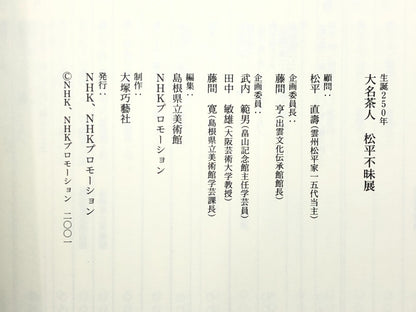 生誕250年
大名茶人　松平不昧展
顧問：
松平　直壽（雲州松平家一五代当主）
企画委員長：
藤間　亨（出雲文化伝承館館長）
企画委員：
武内　範男（畠山記念館主任学芸員）
田中　敏雄（大阪芸術大学教授）
藤間　寛（島根県立美術館学芸課長）
編集：
島根県立美術館
NHKプロモーション
制作：
大塚巧藝社
発行：
NHK、NHKプロモーション
©NHK、NHKプロモーション　二〇〇一